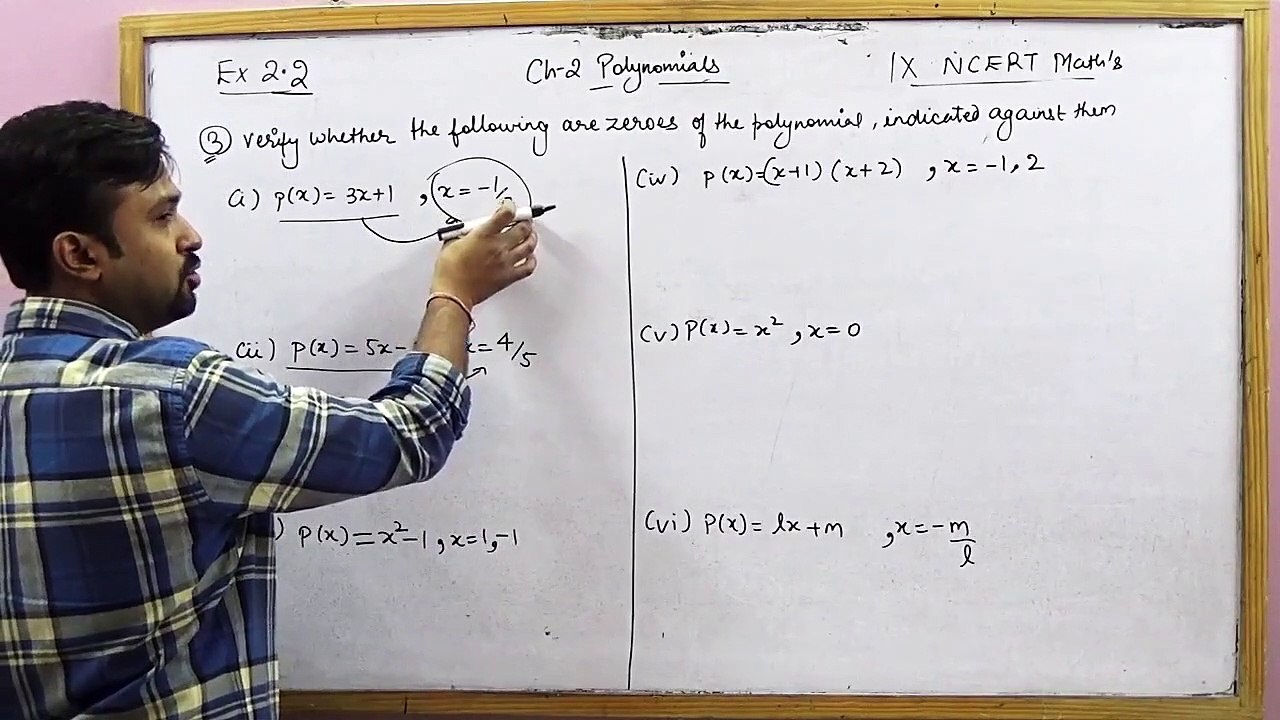 Ex 2.2
Ch-2 Polynomials
IX NCERT Math's
③ verify whether the following are zeroes of the polynomial, indicated against them
(i) p(x) = 3x+1 , x = -1/
(ii) p(x) = 5x- x = 4/5
) P(x) = x²-1, x=1,-1
(iv) p(x)=(x+1) (x+2) , x = -1, 2
(v) P(x) = x² , x = 0
(vi) P(x) = lx + m , x = -m/l